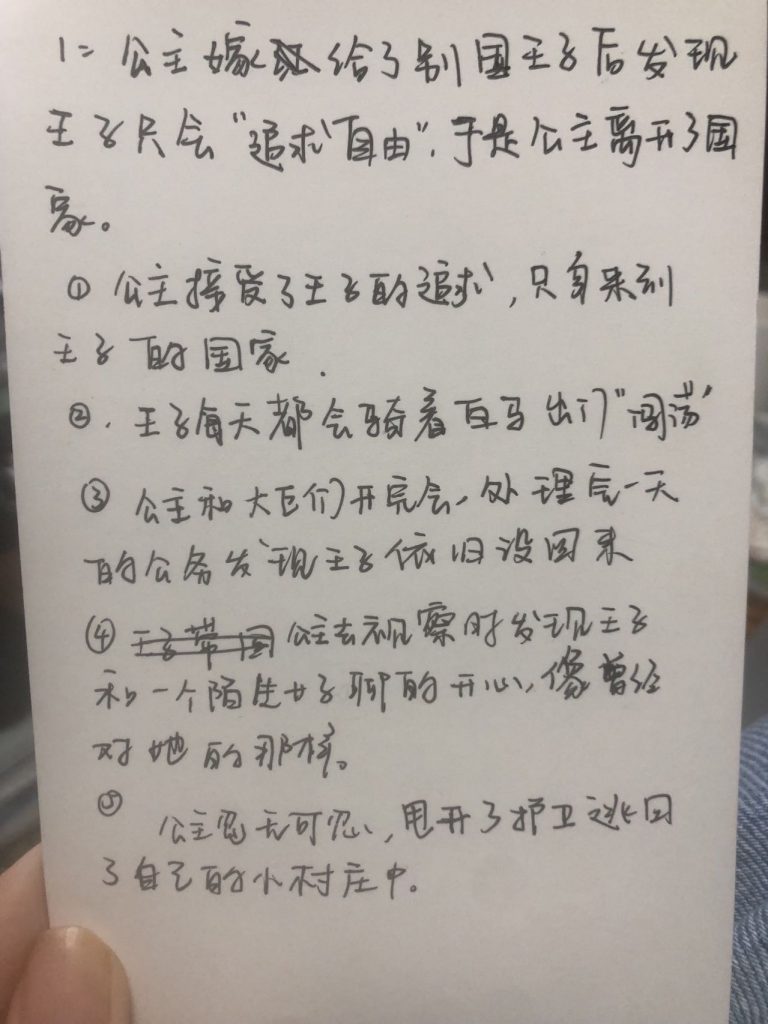 1= 公主嫁给了别国王子后发现
王子只会“追求自由”.于是公主离开了国
家。
① 公主接受了王子的追求,只身来到
王子的国家.
②.王子每天都会骑着白马出门“闯荡”
③ 公主和大臣们开完会、处理完一天
的公务发现王子依旧没回来
④ 王子带回 公主去视察时发现王子
和一个陌生女子聊的开心,像曾经
对她的那样。
⑤ 公主忍无可忍,甩开了护卫逃回
了自己的小村庄中。